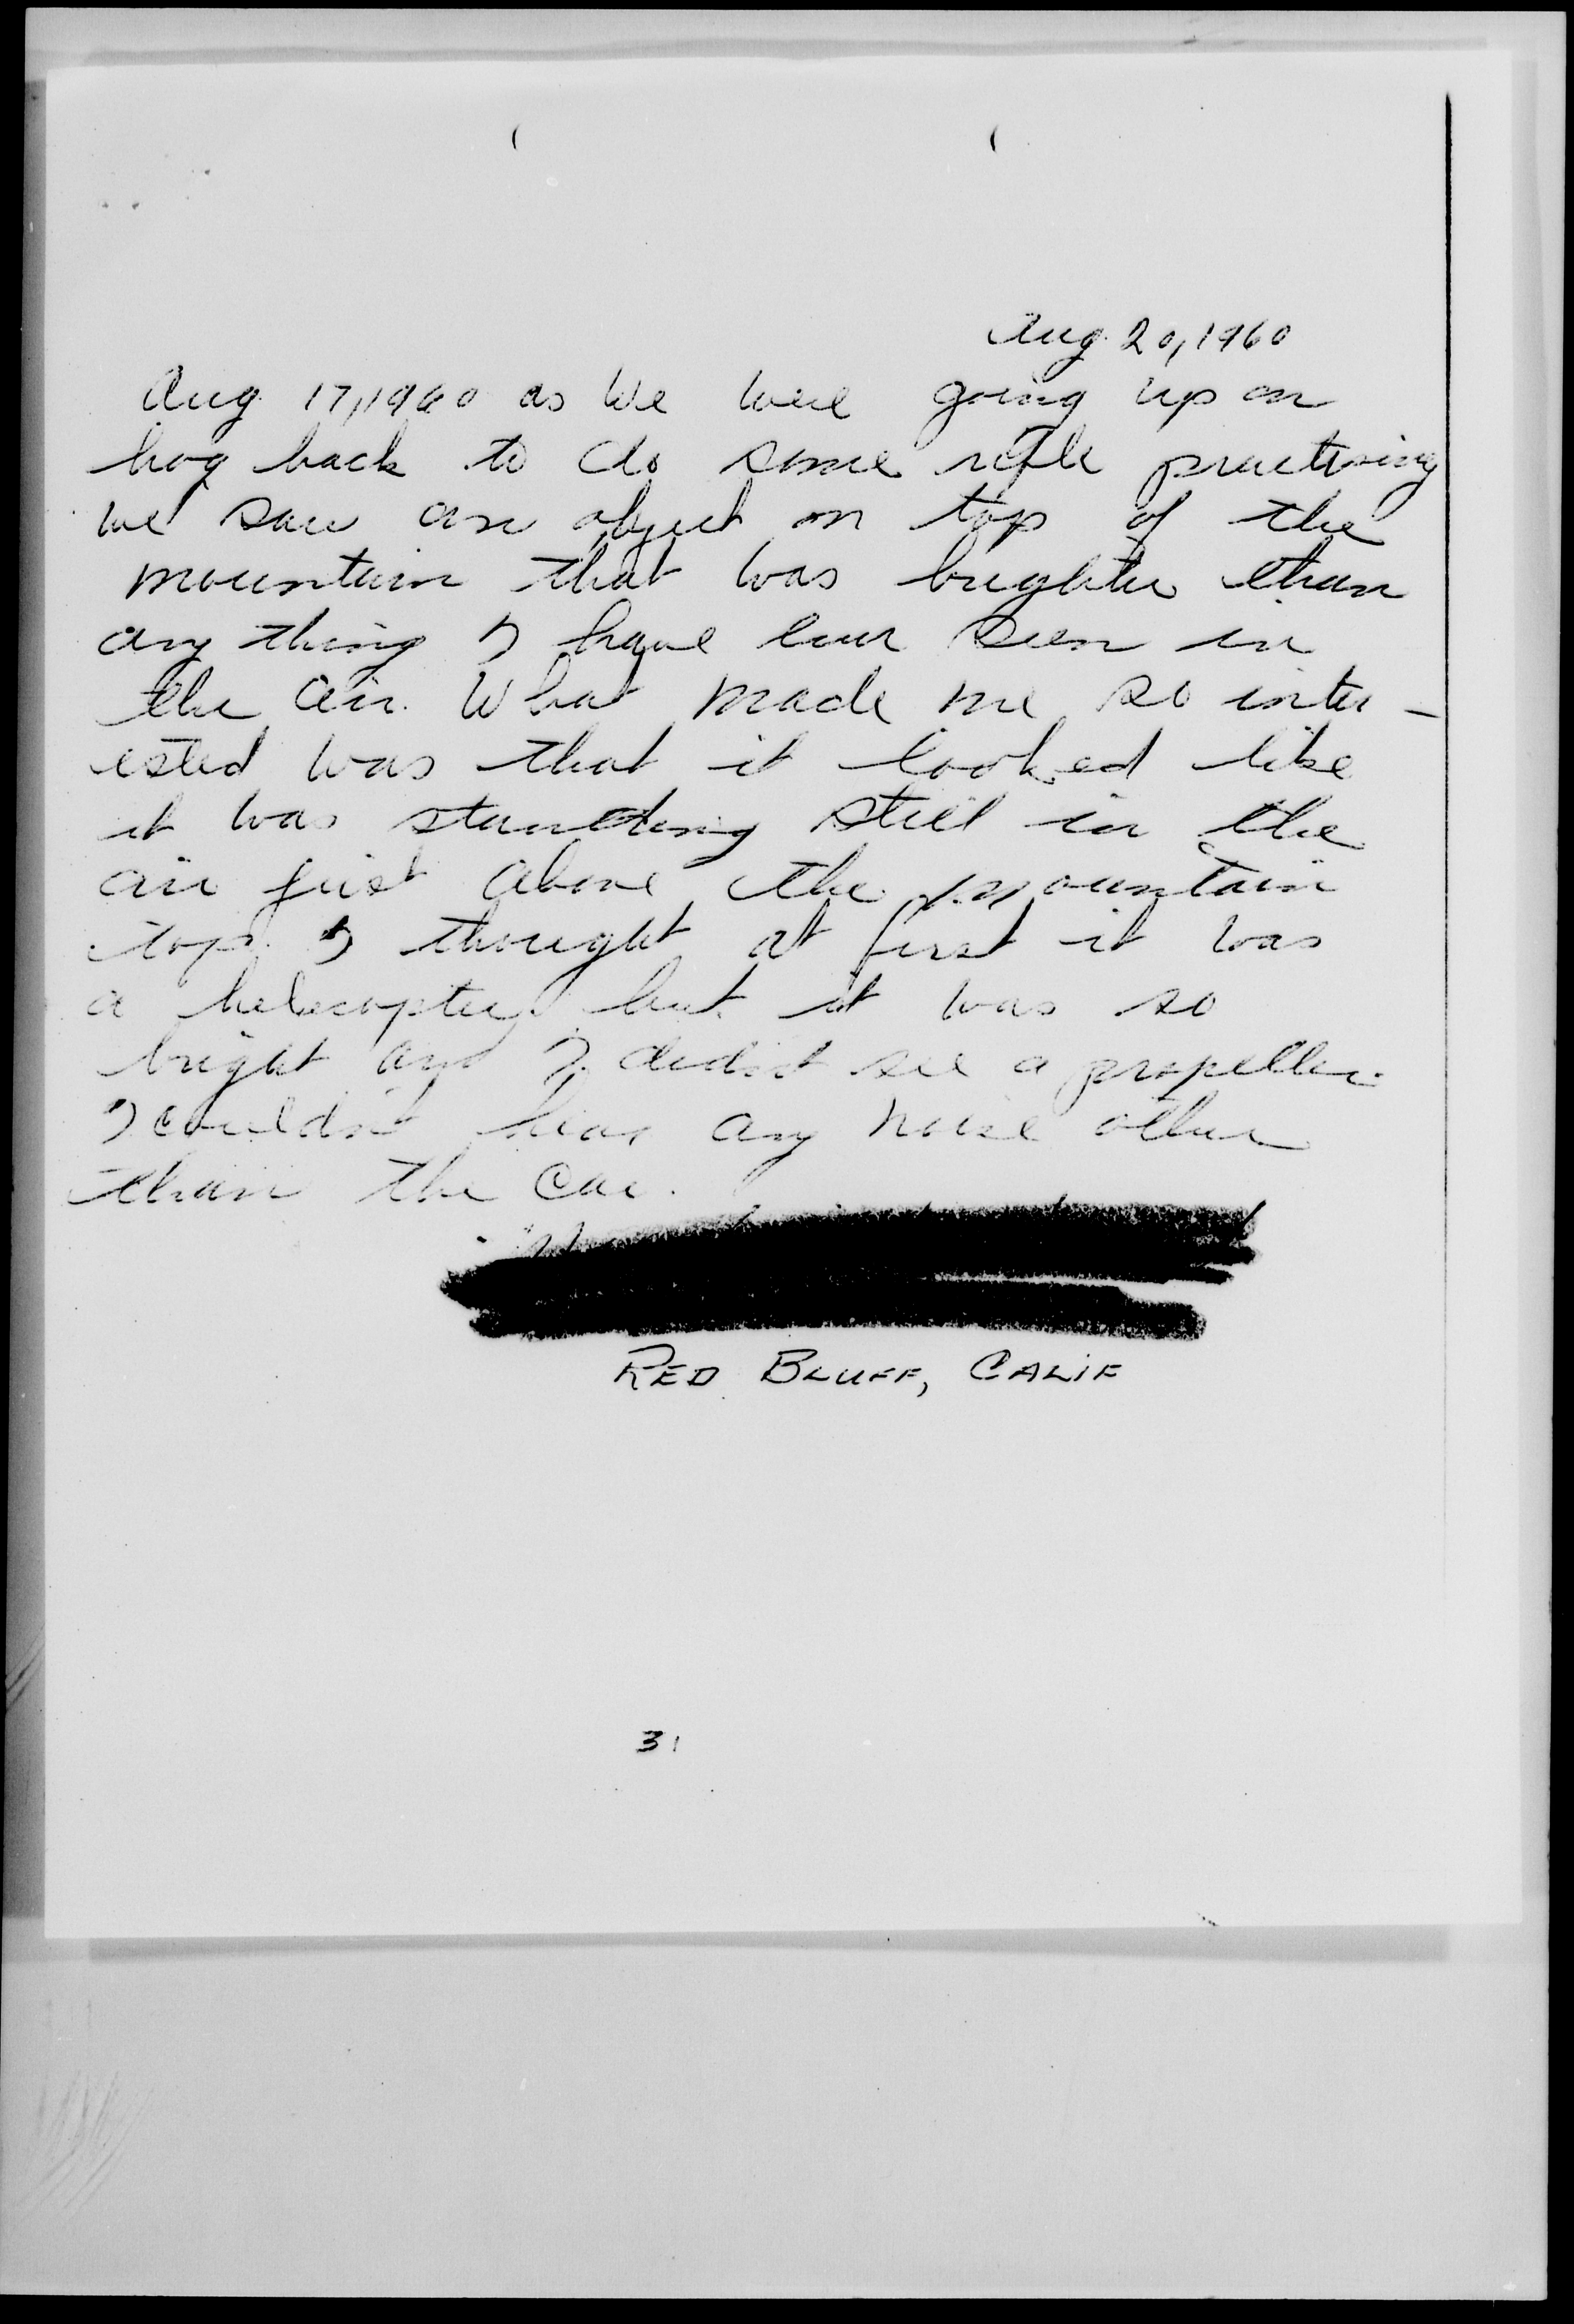 Aug. 20, 1960
Aug. 17, 1960 as we were going up on
hog back to do some rifle practising
we saw an object on top of the
mountain that was brighter than
any thing I have ever seen in
the air. What made me so inter-
ested was that it looked like
it was standing still in the
air just above the mountain
top. I thought at first it was
a helecopter, but it was so
bright and I didn't see a propeller.
I couldn't hear any noise other
than the car.
RED BLUFF, CALIF
31